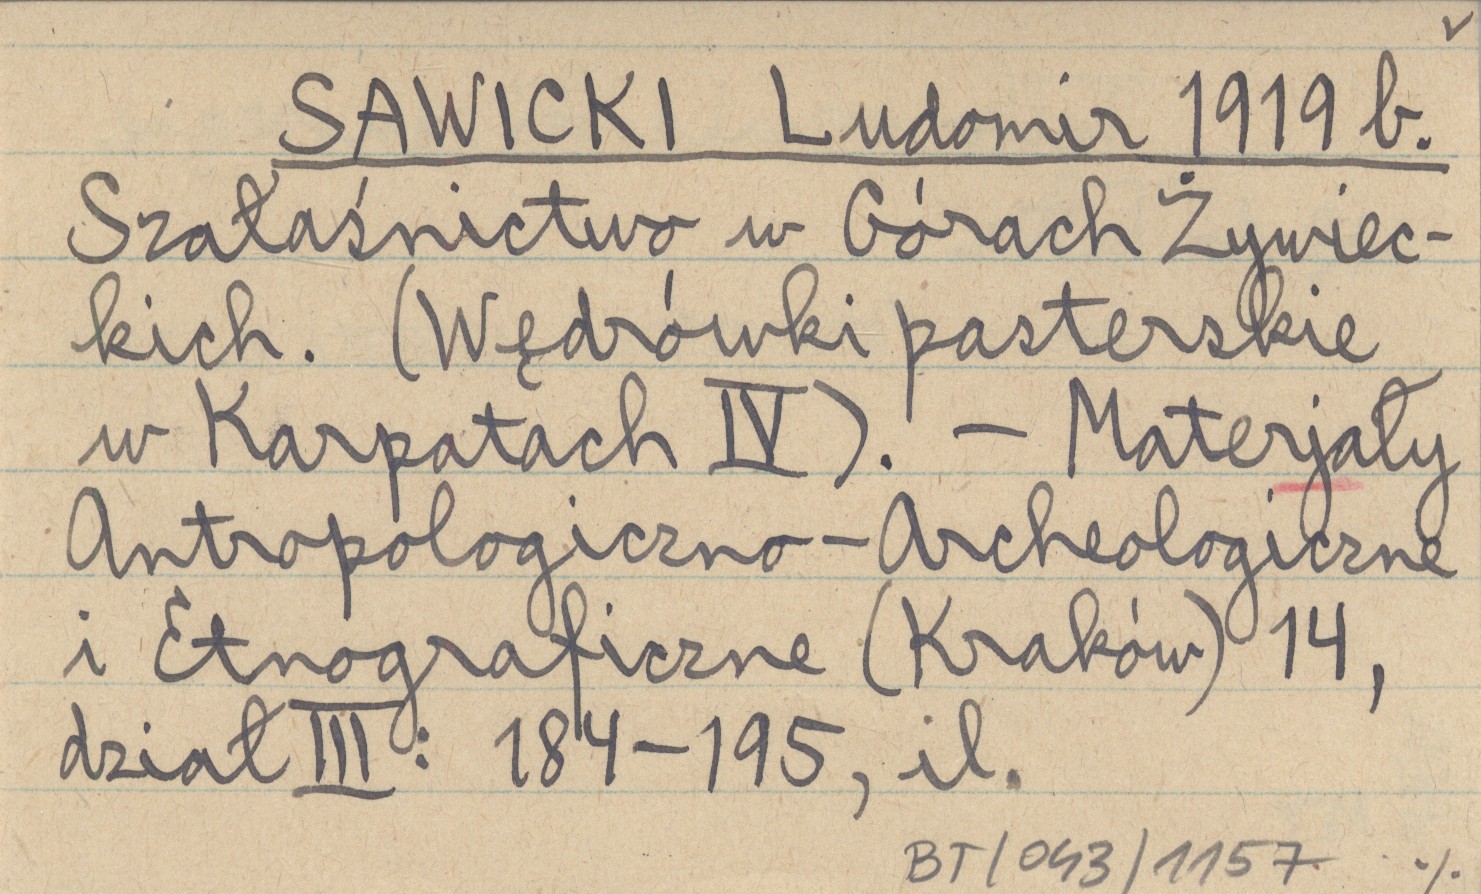 SAWICKI Ludomir 1919 b.
Szałaśnictwo w Górach Żywiec-
kich. (Wędrówki pasterskie
w Karpatach IV). – Materjały
Antropologiczno-Archeologiczne
i Etnograficzne (Kraków) 14,
dział III: 184–195, il.
BT/043/1157 ./.